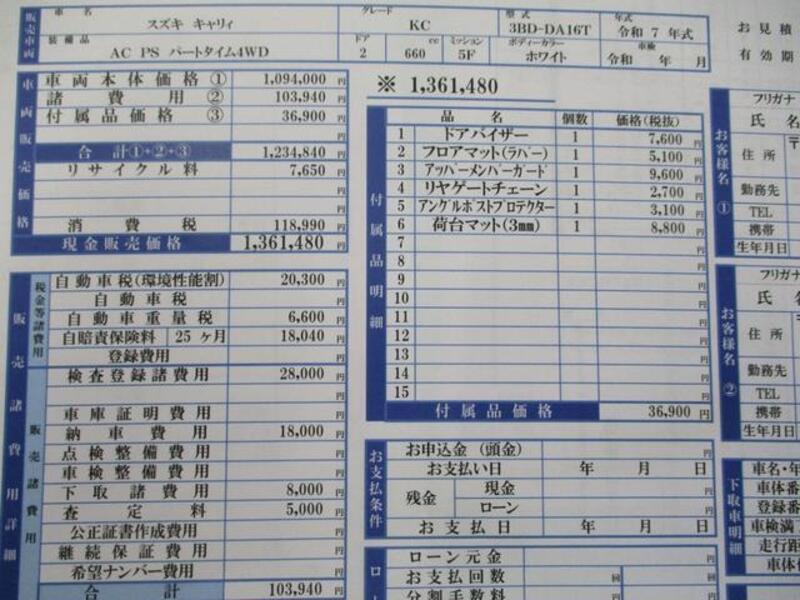 販売車両 車名 スズキ キャリィ グレード KC 型式 3BD-DA16T 年式 令和 7 年式
装備品 AC PS パートタイム4WD ドア 2 cc 660 ミッション 5F ボディーカラー ホワイト 車検 令和 年 月
お見積
有効期
車両販売価格
車両本体価格① 1,094,000 円
諸費用② 103,940 円
付属品価格③ 36,900 円
合計①+②+③ 1,234,840 円
リサイクル料 7,650 円
消費税 118,990 円
現金販売価格 1,361,480 円
※ 1,361,480
付属品明細
品名 個数 価格(税抜)
1 ドアバイザー 1 7,600 円
2 フロアマット(ラバー) 1 5,100 円
3 アッパーメンバーガード 1 9,600 円
4 リヤゲートチェーン 1 2,700 円
5 アングルポストプロテクター 1 3,100 円
6 荷台マット(3mm) 1 8,800 円
7 円
8 円
9 円
10 円
11 円
12 円
13 円
14 円
15 円
付属品価格 36,900 円
販売諸費用詳細
税金等諸費用
自動車税(環境性能割) 20,300 円
自動車税 円
自動車重量税 6,600 円
自賠責保険料 25 ヶ月 18,040 円
登録費用 円
販売諸費用
検査登録諸費用 28,000 円
円
車庫証明費用 円
納車費用 18,000 円
点検整備費用 円
車検整備費用 円
下取諸費用 8,000 円
査定料 5,000 円
公正証書作成費用 円
継続保証費用 円
希望ナンバー費用 円
合計 103,940 円
お支払条件
お申込金(頭金) 円
お支払い日 年 月 日
残金 現金 円
ローン 円
お支払日 年 月 日
ロー
ローン元金 円
お支払回数 回 回
分割手数料 円
お客様名①
フリガナ
氏名
住所 〒
勤務先
TEL
携帯
生年月日
お客様名②
フリガナ
氏
住所
勤務先
TEL
携帯
生年月日
下取車明細
車名・年
車体番
登録番
車検満
走行距
車体